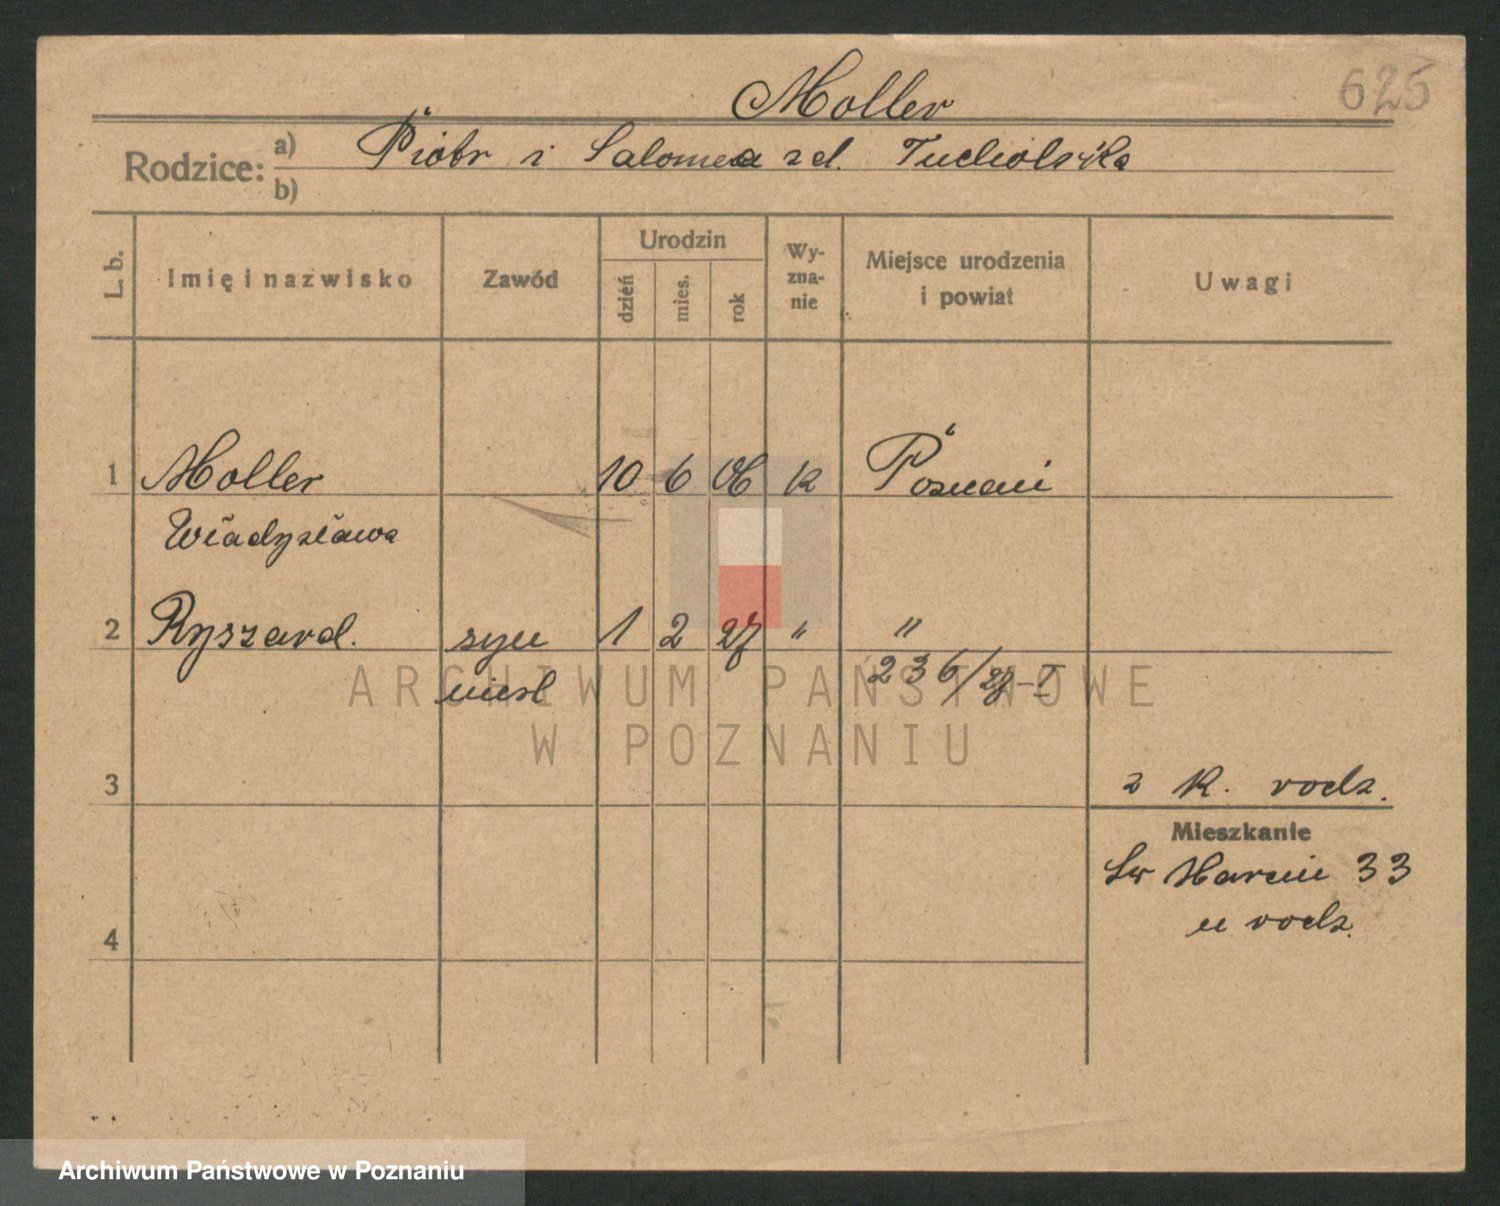 625
Moller
Rodzice: a) Piotr i Salomea zd. Tucholska
b)
L. b. Imię i nazwisko Zawód Urodzin dzień mies. rok Wy-zna-nie Miejsce urodzenia i powiat Uwagi
1 Moller 10 6 06 k Poznań
Władysława
2 Ryszard. syn 1 2 27 " "
nieśl 236/27-I
ARCHIWUM PAŃSTWOWE
W POZNANIU
3 z k. rodz.
Mieszkanie
Św Marcin 33
u rodz.
4
Archiwum Państwowe w Poznaniu